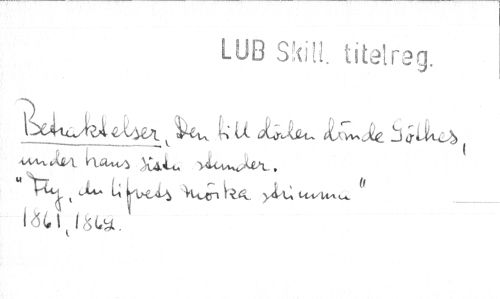 LUB Skill. titelreg.
Betraktelser, Den till döden dömde Göthes,
under hans sista stunder.
"Fly, du lifvets mörka strimma"
1861, 1862.